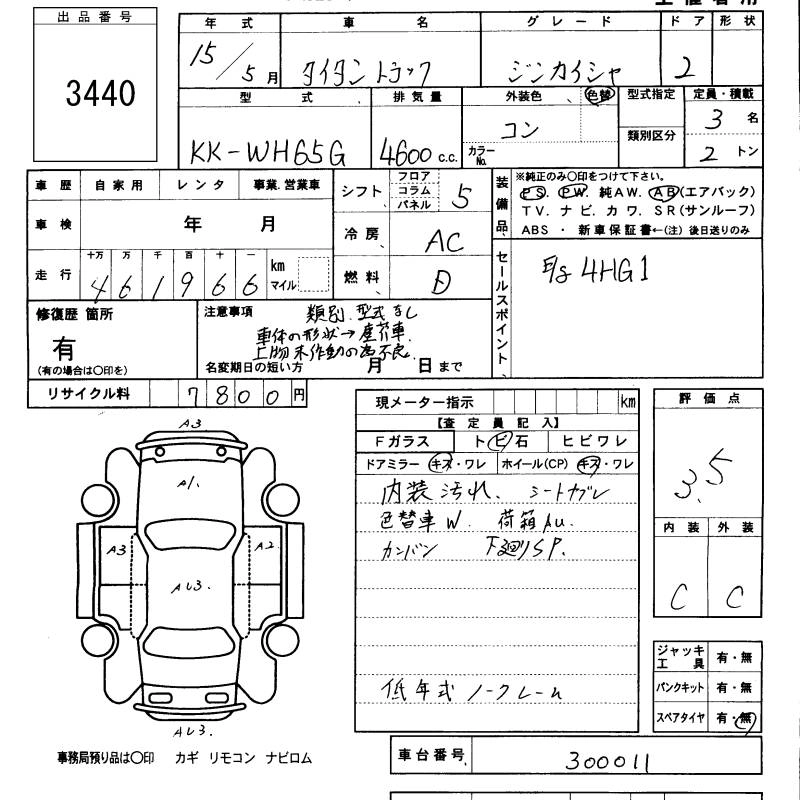 出品番号
3440
年式 車名 グレード ドア 形状
15/5月 タイタントラック ジンカイシャ 2
型式 排気量 外装色 色替 型式指定 定員・積載
KK-WH65G 4600c.c. コン カラーNo. 類別区分 3名
2トン
車歴 自家用 レンタ 事業.営業車
車検 年 月
走行 十万 万 千 百 十 一
461966 km マイル
シフト フロア コラム パネル 5
冷房 AC
燃料 D
装備品 ※純正のみ○印をつけて下さい。
PS. PW. 純AW. AB(エアバック)
TV. ナビ. カワ. SR(サンルーフ)
ABS ・ 新車保証書←(注) 後日送りのみ
セールスポイント E/g 4HG1
修復歴 箇所
有
(有の場合は○印を)
注意事項 類別.型式なし
車体の形状→塵芥車.
上物未作動の為不良.
名変期日の短い方 月 日まで
リサイクル料 7800円
現メーター指示 km
【査定員記入】
Fガラス トビ石 ヒビワレ
ドアミラー キズ・ワレ ホイール(CP) キズ・ワレ
内装汚れ. シートカブレ
色替車W. 荷箱AU.
カンバン 下廻りSP.
低年式 ノークレーム
評価点
3.5
内装 外装
C C
ジャッキ工具 有・無
パンクキット 有・無
スペアタイヤ 有・無
A3
A1.
A3 A2
AU3.
AU3.
事務局預り品は○印 カギ リモコン ナビロム
車台番号 300011